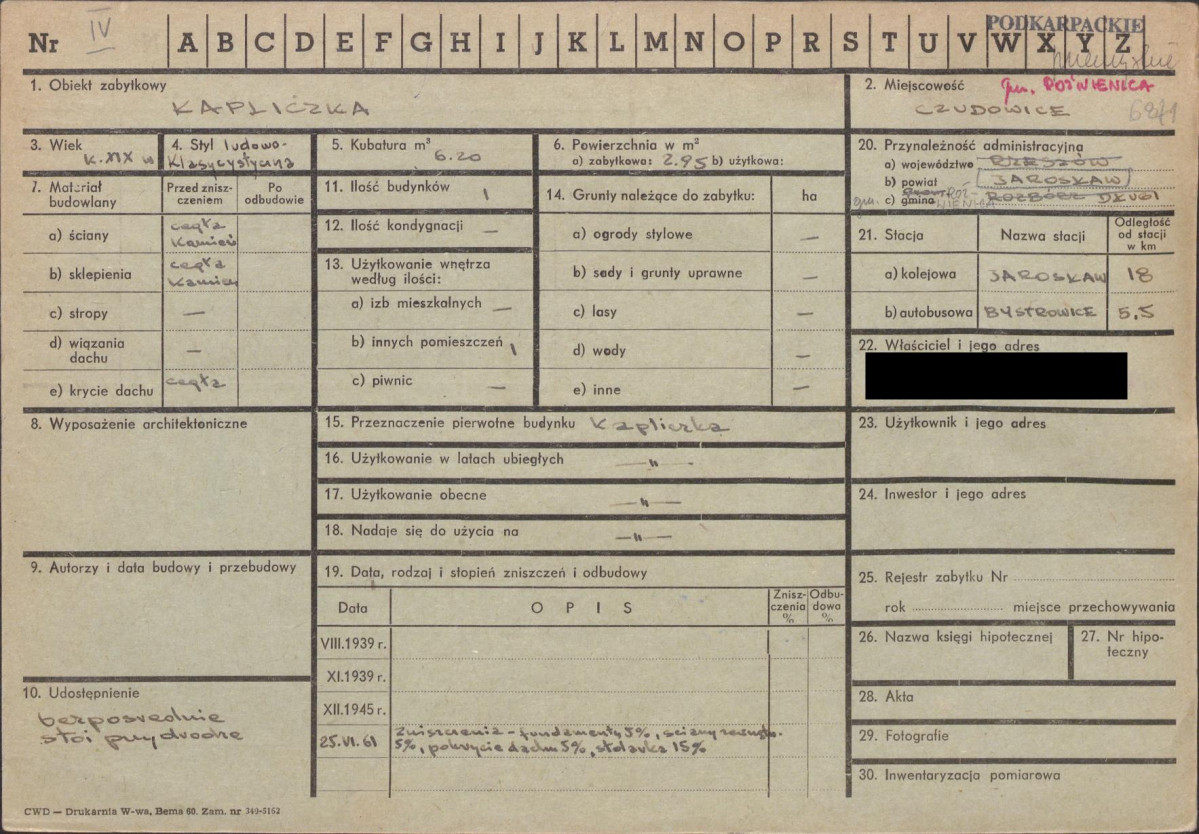 Nr IV A B C D E F G H I J K L M N O P R S T U V W X Y Z
PODKARPACKIE
1. Obiekt zabytkowy
KAPLICZKA
2. Miejscowość gm. ROŹWIENICA
CZUDOWICE
3. Wiek
k. XIX w
4. Styl ludowo-
klasycystyczna
5. Kubatura m³
6.20
6. Powierzchnia w m²
a) zabytkowa: 2.95 b) użytkowa:
20. Przynależność administracyjna
a) województwo RZESZÓW
b) powiat JAROSŁAW
c) gmina ROZBÓRZ DŁUGI
gm. ROŹ-
WIENICA
7. Materiał
budowlany
Przed znisz-
czeniem
Po
odbudowie
a) ściany cegła
kamień
b) sklepienia cegła
kamień
c) stropy —
d) wiązania
dachu —
e) krycie dachu cegła
11. Ilość budynków 1
12. Ilość kondygnacji —
13. Użytkowanie wnętrza
według ilości:
a) izb mieszkalnych —
b) innych pomieszczeń 1
c) piwnic —
14. Grunty należące do zabytku: ha
a) ogrody stylowe —
b) sady i grunty uprawne —
c) lasy —
d) wody —
e) inne —
21. Stacja Nazwa stacji
Odległość
od stacji
w km
a) kolejowa JAROSŁAW 18
b) autobusowa BYSTROWICE 5,5
22. Właściciel i jego adres
8. Wyposażenie architektoniczne
15. Przeznaczenie pierwotne budynku Kapliczka
16. Użytkowanie w latach ubiegłych —"—
17. Użytkowanie obecne —"—
18. Nadaje się do użycia na —"—
23. Użytkownik i jego adres
24. Inwestor i jego adres
9. Autorzy i data budowy i przebudowy
19. Data, rodzaj i stopień zniszczeń i odbudowy
Data OPIS
Znisz-
czenia
%
Odbu-
dowa
%
VIII.1939 r.
XI.1939 r.
XII.1945 r.
25.VI.61 Zniszczenia - fundamenty 5%, ściany zewnętr.
5%, pokrycie dachu 5%, stolarka 15%
25. Rejestr zabytku Nr
rok miejsce przechowywania
26. Nazwa księgi hipotecznej
27. Nr hipo-
teczny
10. Udostępnienie
bezpośrednie
stoi przy drodze
28. Akta
29. Fotografie
30. Inwentaryzacja pomiarowa
CWD — Drukarnia W-wa, Bema 60. Zam. nr 349-5162